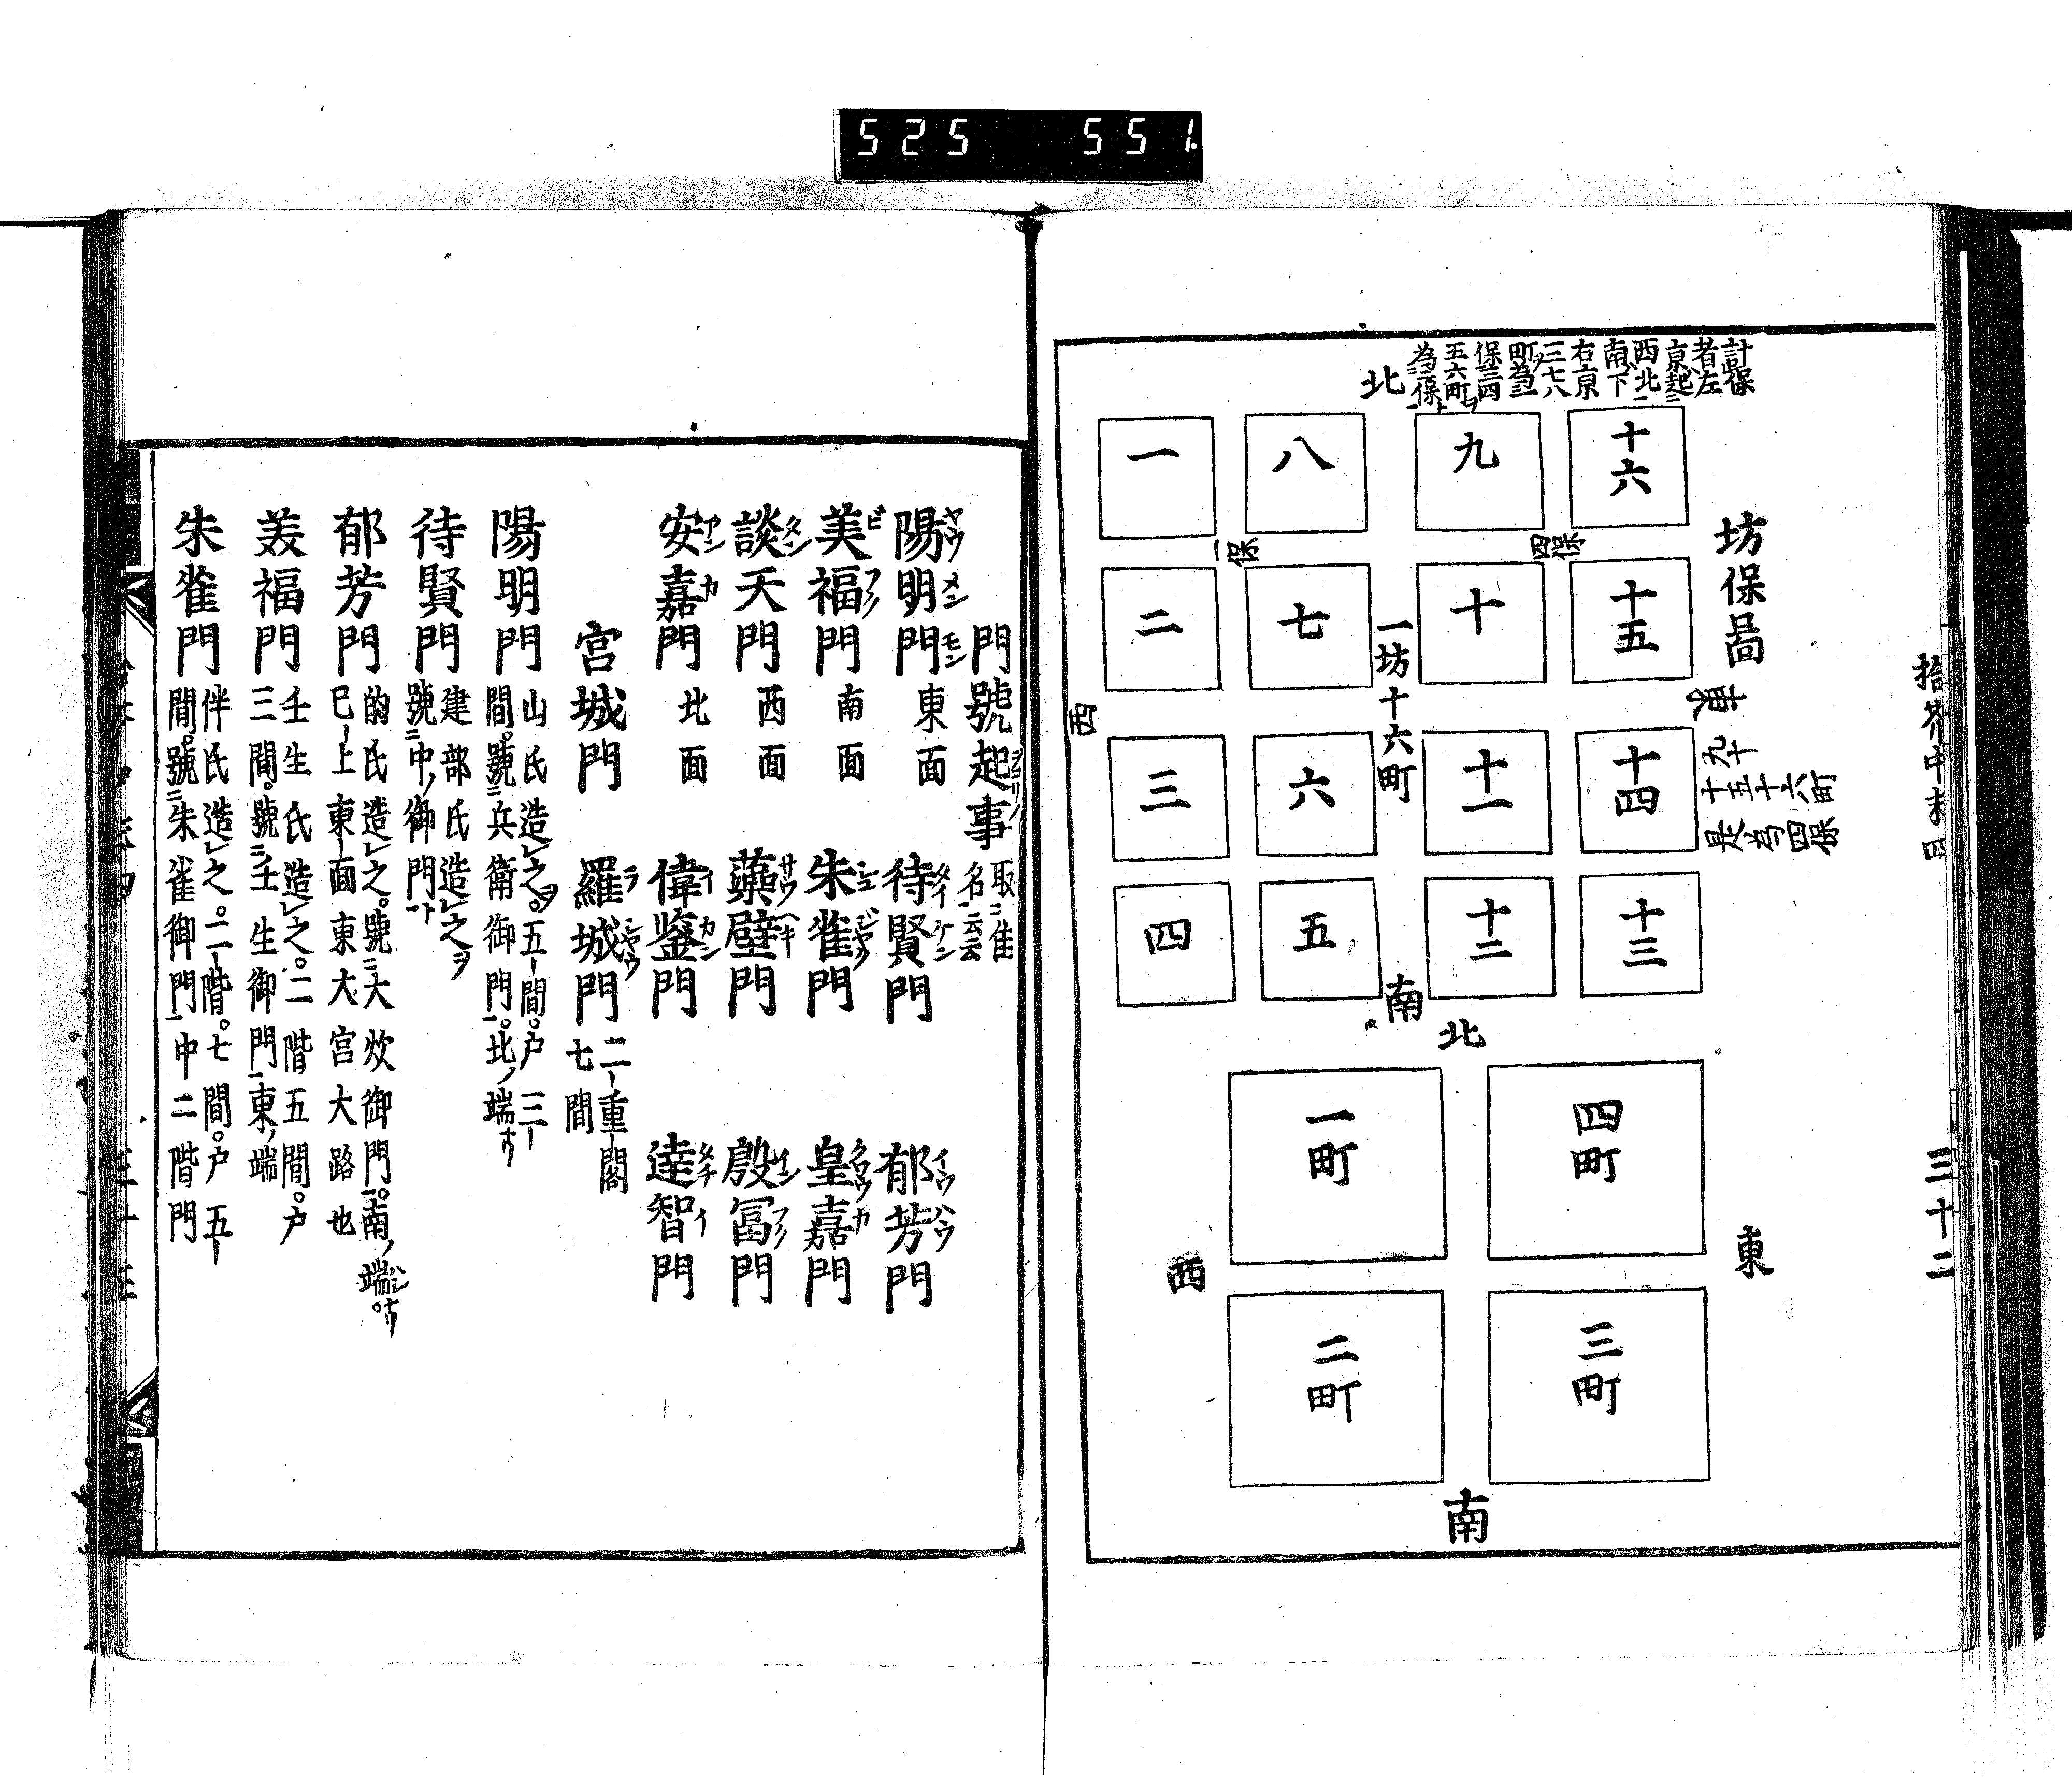 525 551.
拾芥中末四 三十二
坊保啚
計保
者左
京起
西北
南下
右京
三七八
町為一
保三四
五六町
為二保
北
十六
九
八
一
四保
一保
十五
十
七
二
一坊十六町
東
西
九十
十五十六町
是為四保
十四
十一
六
三
十三
十二
五
四
南
北
四町
一町
東
西
三町
二町
南
門號起事 取隹
名云云
陽明門 東面 待賢門 郁芳門
美福門 南面 朱雀門 皇嘉門
談天門 西面 藻壁門 殷冨門
安嘉門 北面 偉鑒門 達智門
宮城門 羅城門 二重閣
七間
陽明門 山氏造之。五間。户三
間。號兵衛御門。北ノ端ナリ
待賢門 建部氏造之ヲ
號中ノ御門ト
郁芳門 的氏造之。號大炊御門。南ノ端ナリ
巳上東面東大宮大路也
美福門 壬生氏造之。二階五間。户
三間。號壬生御門東ノ端
朱雀門 伴氏造之。二階。七間。户五
間。號朱雀御門中二階門